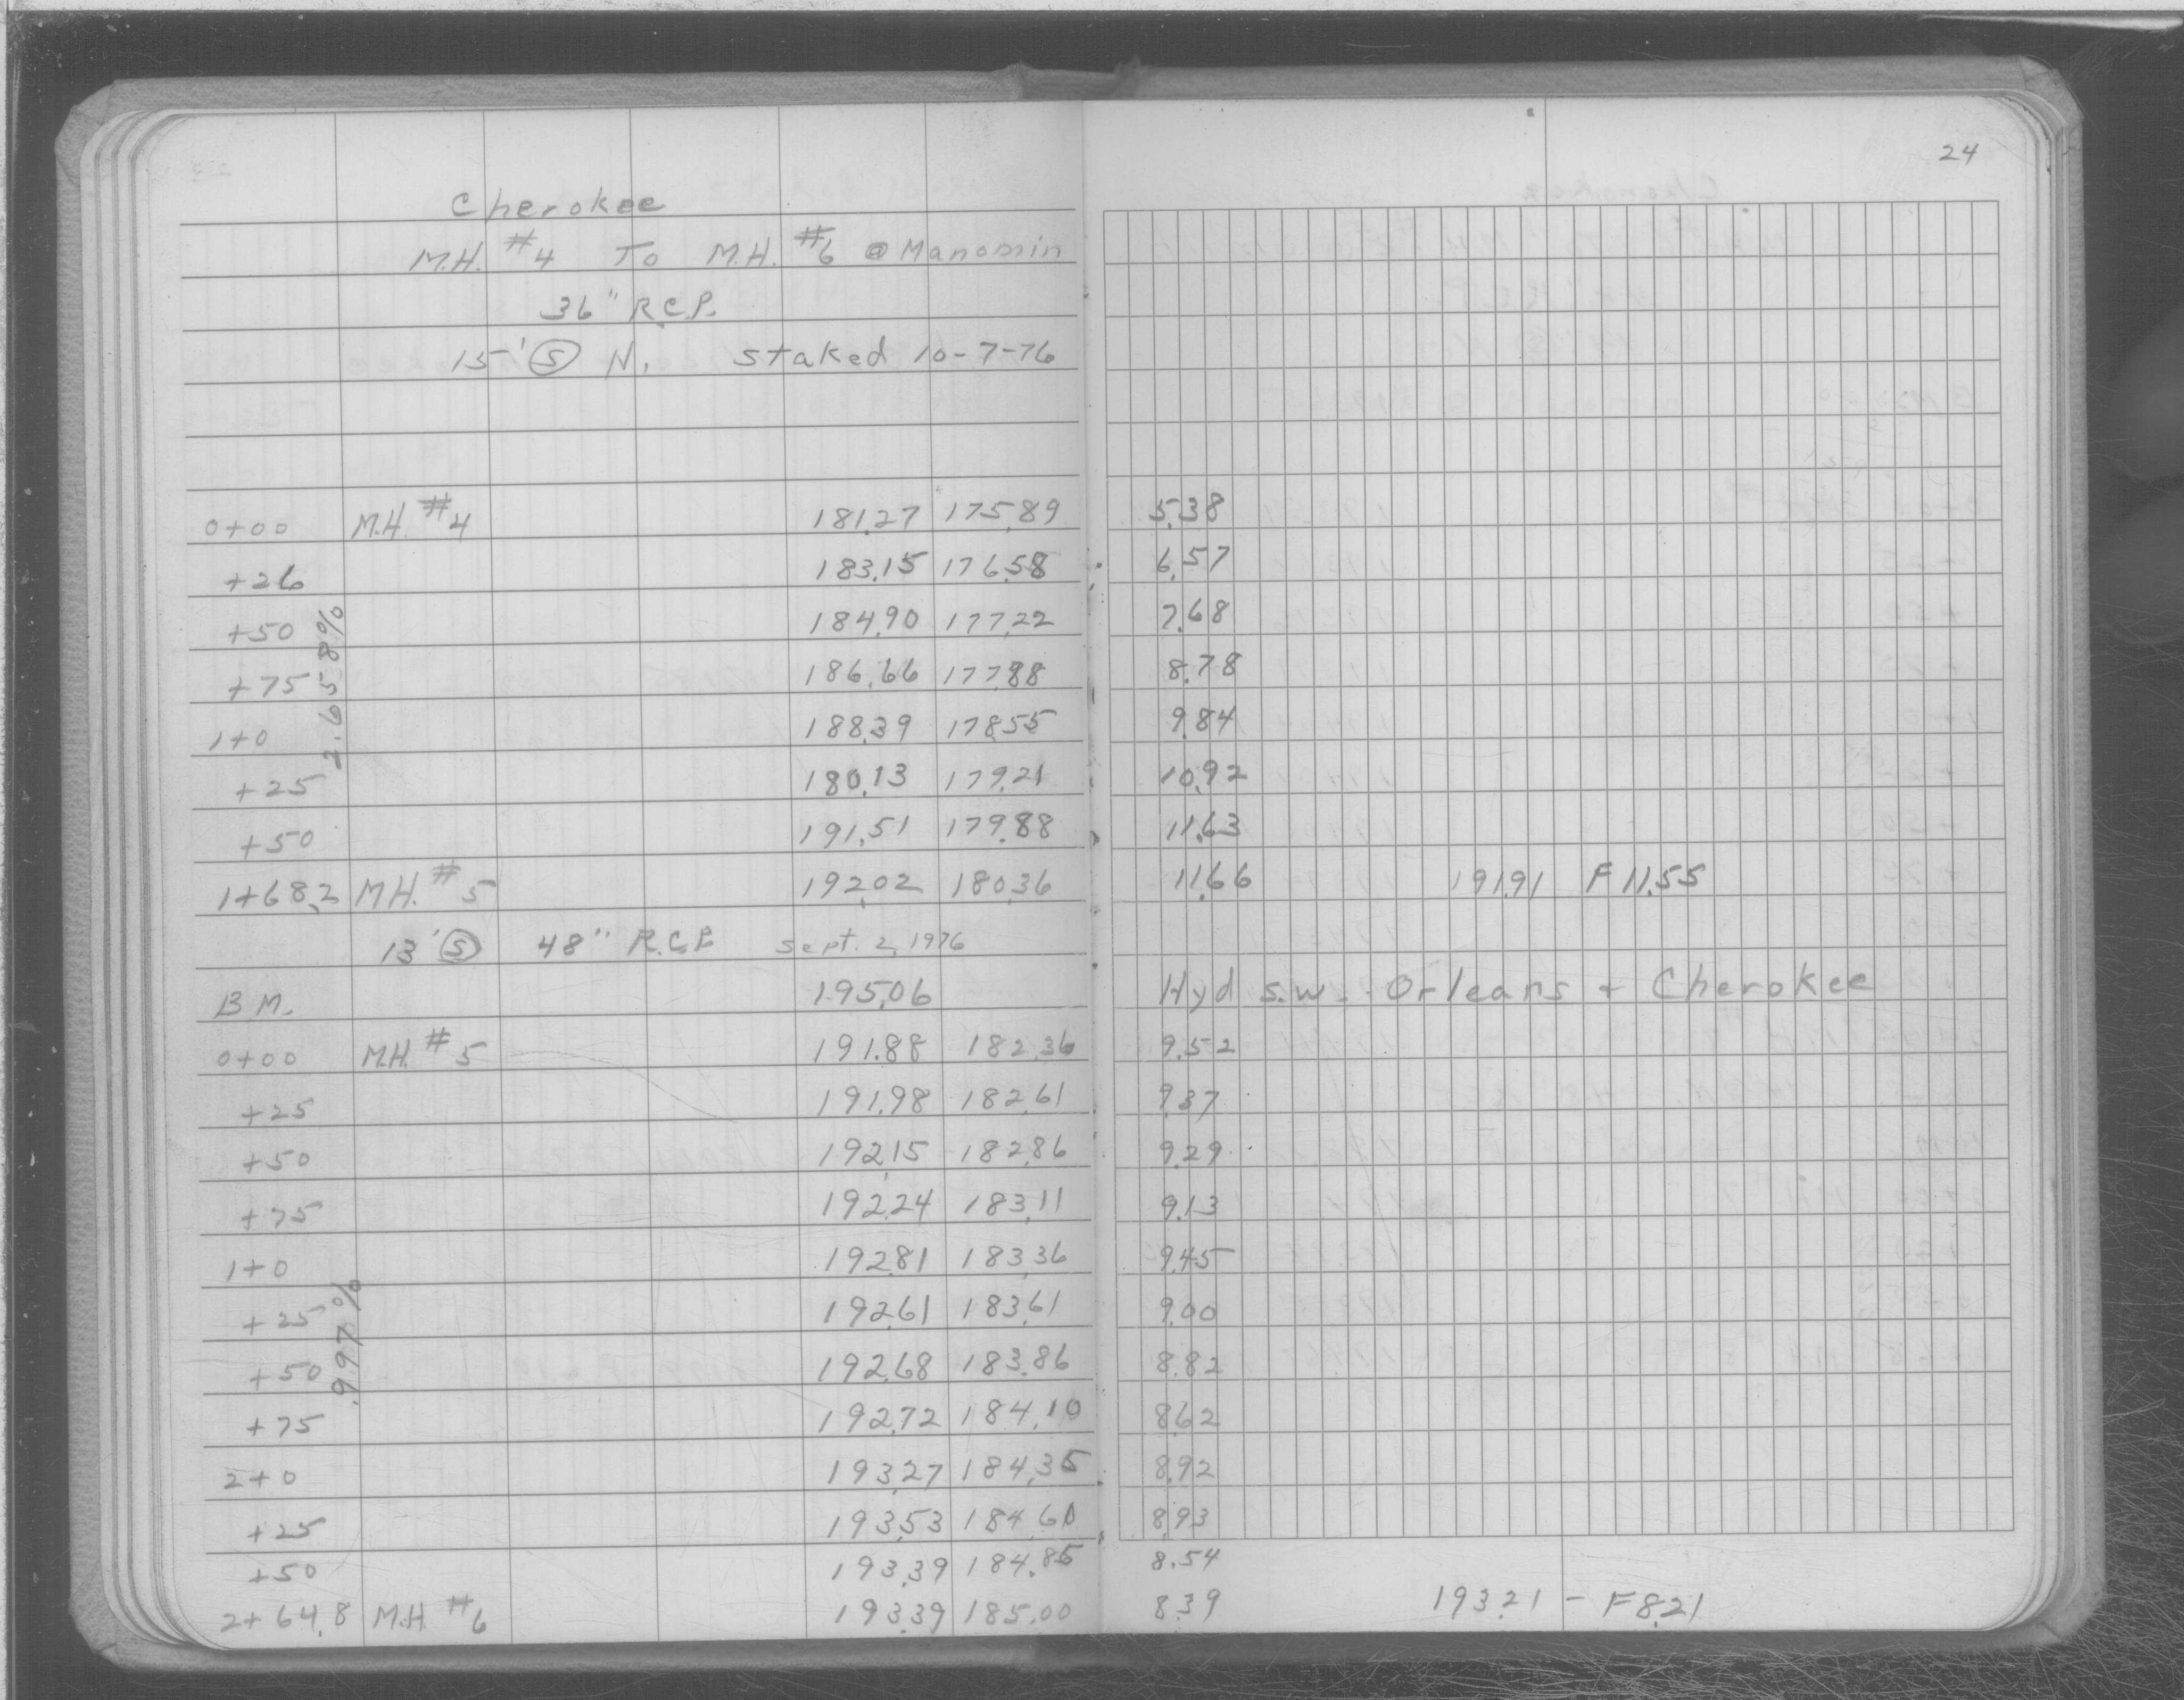 24
Cherokee
M.H. #4 To M.H. #6 @ Manomin
36" R.C.P.
15' Ⓢ N. staked 10-7-76
0+00 M.H. #4 181.27 175.89 5.38
+26 183.15 176.58 6.57
+50 184.90 177.22 7.68
+75 186.66 177.88 8.78
1+0 188.39 178.55 9.84
+25 180.13 179.21 10.92
+50 191.51 179.88 11.63
2.658%
1+68.2 M.H. #5 192.02 180.36 11.66 191.91 F 11.55
13' Ⓢ 48" R.C.P. Sept. 2, 1976
B.M. 195.06 Hyd s.w. Orleans + Cherokee
0+00 M.H. #5 191.88 182.36 9.52
+25 191.98 182.61 9.37
+50 192.15 182.86 9.29
+75 192.24 183.11 9.13
1+0 192.81 183.36 9.45
+25 192.61 183.61 9.00
+50 192.68 183.86 8.82
+75 192.72 184.10 8.62
.997%
2+0 193.27 184.35 8.92
+25 193.53 184.60 8.93
+50 193.39 184.85 8.54
2+64.8 M.H. #6 193.39 185.00 8.39 193.21 - F 8.21